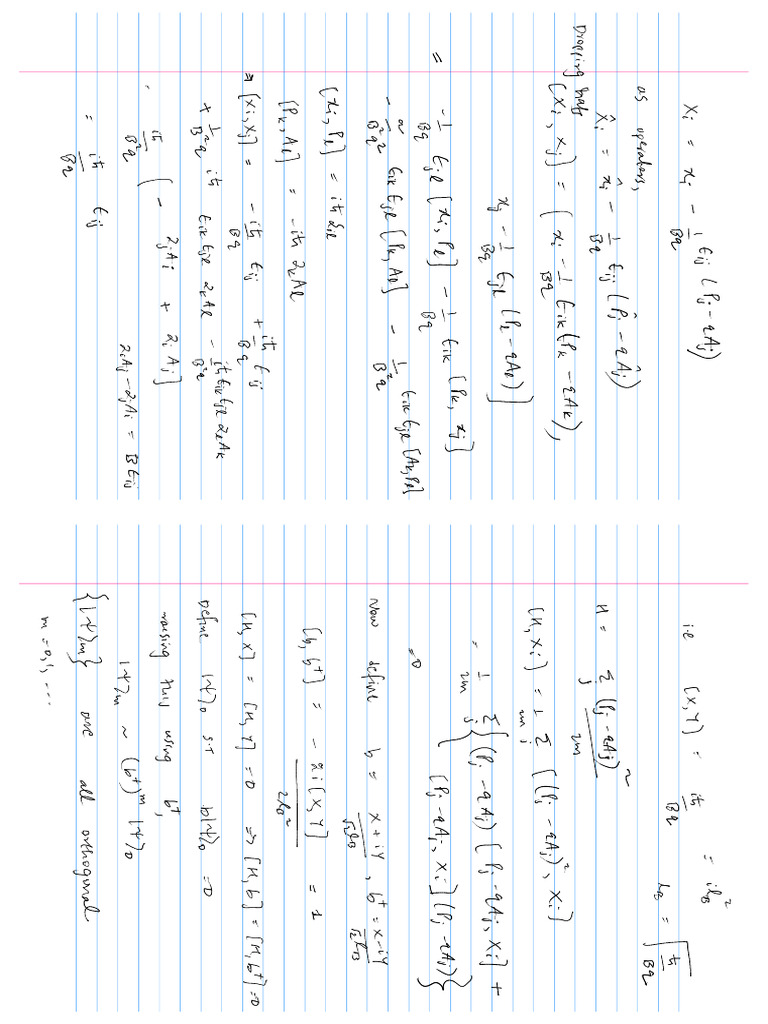 X_i = x_i - 1/Bq ε_ij (P_j - qA_j)
as operators,
X̂_i = x̂_i - 1/Bq ε_ij (P̂_j - qÂ_j)
Dropping hats
[X_i, X_j] = [x_i - 1/Bq ε_ik (P_k - qA_k),
x_j - 1/Bq ε_jl (P_l - qA_l)]
= -1/Bq ε_jl [x_i, P_l] - 1/Bq ε_ik [P_k, x_j]
- 1/B²q ε_ik ε_jl [P_k, A_l] - 1/B²q ε_ik ε_jl [A_k, P_l]
[x_i, P_l] = iħ δ_il
[P_k, A_l] = -iħ ∂_k A_l
⇒ [X_i, X_j] = -iħ/Bq ε_ij + iħ/Bq ε_ij
+ 1/B²q iħ ε_ik ε_jl ∂_k A_l - iħ/B²q ε_ik ε_jl ∂_l A_k
= iħ/B²q [- ∂_j A_i + ∂_i A_j]
∂_i A_j - ∂_j A_i = B ε_ij
= iħ/Bq ε_ij
i.e [X, Y] = iħ/Bq = i l_B²
l_B = √(ħ/Bq)
H = Σ_j (P_j - qA_j)²/2m
[H, X_i] = 1/2m Σ_j [(P_j - qA_j)², X_i]
= 1/2m Σ_j {(P_j - qA_j) [P_j - qA_j, X_i] +
[P_j - qA_j, X_i] (P_j - qA_j)}
= 0
Now define b = X + iY/√2 l_B, b† = X - iY/√2 l_B
[b, b†] = - 2i [X, Y]/2l_B² = 1
[H, X] = [H, Y] = 0 ⇒ [H, b] = [H, b†] = 0
Define |ψ⟩_0 st b|ψ⟩_0 = 0
raising this using b†,
|ψ⟩_m ~ (b†)^m |ψ⟩_0
{|ψ⟩_m} are all orthogonal
m = 0, 1, ...